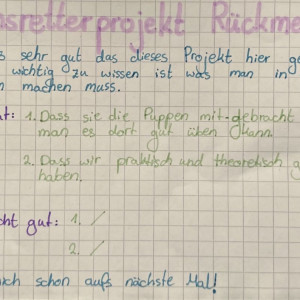 nsretterprojekt Rückme
s sehr gut das dieses Projekt hier ge
wichtig zu wissen ist was man in
n machen muss.
ut: 1. Dass sie die Puppen mit-gebracht
man es dort gut üben kann.
2. Dass wir praktisch und theoretisch g
haben.
cht gut: 1. /
2. /
ich schon aufs nächste Mal!